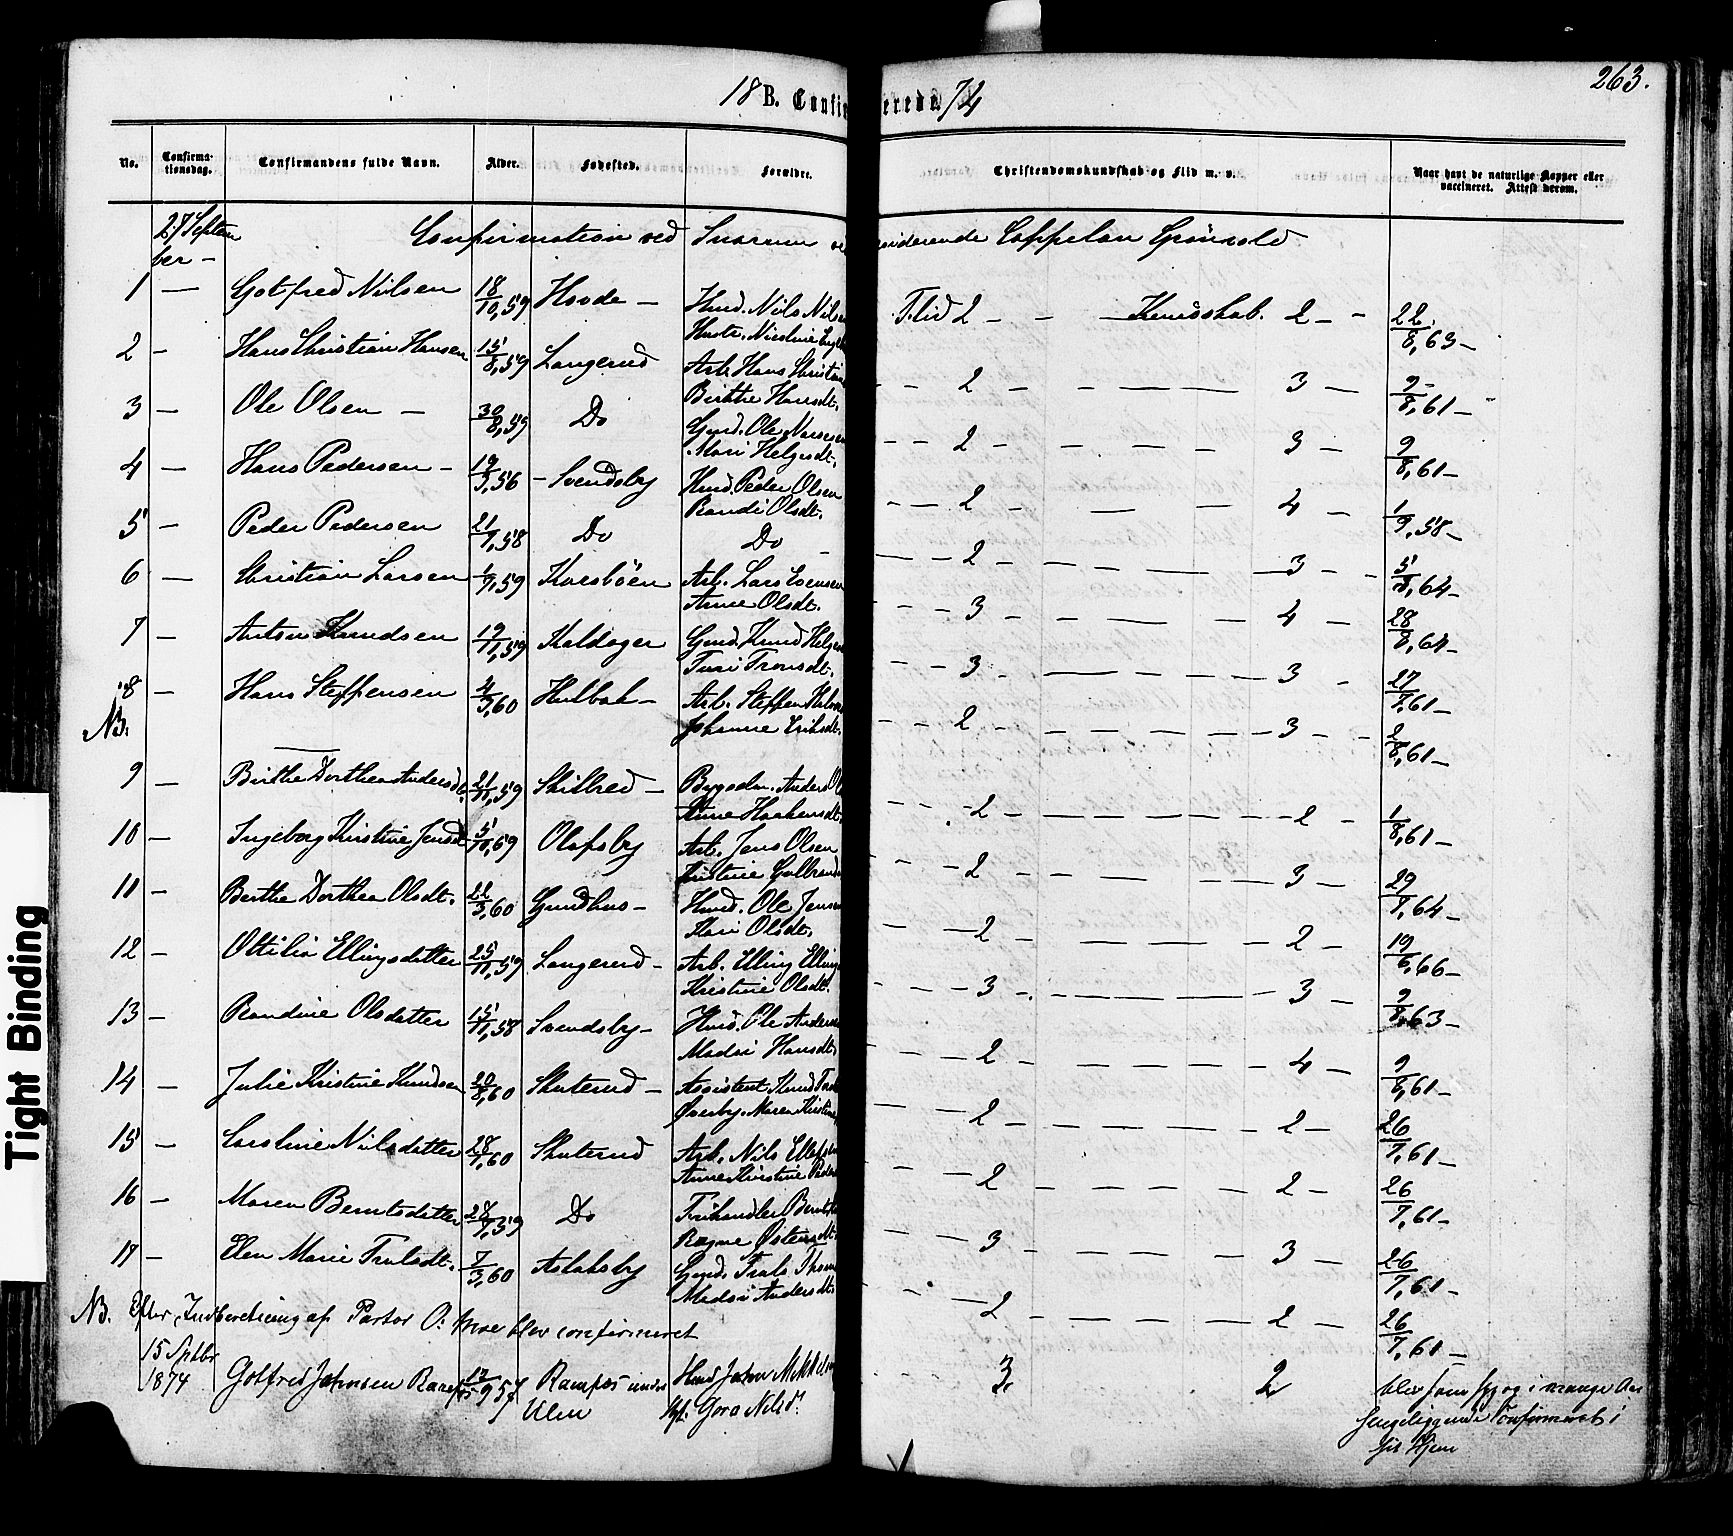 263.
18 B. Confirmerede. 74
No. Confirmationsdag. Confirmandens fulde Navn. Alder. Fødested. Forældre. Christendomskundskab og Flid m. v. Naar havt de naturlige Kopper eller vaccineret. Attest derom.
27 Septem
ber - Confirmation ved Snarum ved Cappelan
1 — Gotfred Nilsen 18/10,59 Hovde - Husm. Nils Nils Flid 2 - - - Kundskab. 2 - - 22/8,63 -
Hustr.
2 - Hans Christian Hansen 15/8,59 Langerud Arb. Hans Christian - - 2 - - — — 3 — 9/8,61 -
Birthe Hansdt.
3 — Ole Olsen — 30/8,59 Do Gmd. Ole - - 2 - - — — 3 — 9/8,61 -
Mari Helgesdt.
4 — Hans Pedersen - 19/3,56 - Svendsby Husm. Peder Olsen - - 2 - — — 4 - 1/9,58 -
Randi Olsdt.
5 — Peder Pedersen 21/7,58 Do Do - — - 2 - - - — — 3 - - 5/8,64 -
6 — Christian Larsen 1/7,59 Arb. Lars Evensen - - 3 - — — 4 - 28/8,64 -
Anne Olsdt.
7 - Anton Knudsen 19/11,59 Kaldager Gmd. Knud Helges - - 3 - — — 3 - 27/7,61 -
Turi Tronsdt.
8 - Hans Steffensen 4/3,60 Hulbak - Arb. Steffen - - 2 - - — — 3 - - 2/8,61 -
NB. Johanne Eriksdt.
9 — Birthe Dorthea Andersdt. 21/11,59 Skilbred - Bygselm. Anders Ol - - -2 - — — 2 - 1/8,61 -
Anne Haakensdt.
10 — Ingeborg Kristine Jensdt 5/10,59 Olafsby Arb. Jens Olsen - - 2 - — — 3 — 29/7,64 -
Kristine Gulbrands
11 - Berthe Dorthea Olsdt. 22/3,60 Grndhus - Husm. Ole Jensen - - 2 - — — 2 - 19/6,66 -
Kari Olsdt.
12 - Ottilia Ellingsdatter 25/11,59 Langerud - Arb. Elling Ellings - - 3 - — — 3 — 9/8,63 -
Kristine Olsdt.
13 - Randine Olsdatter 15/11,58 Svendsby - Husm. Ole Anders - - 2 - — — 4 - 9/8,61 -
Madsi Hansdt.
14 — Julie Kristine Knudsen 20/8,60 Skuterud - Assistent Knud - - 2 - — — 2 - 26/7,61 -
Øverby. Maren Kristine
15 — Caroline Nilsdatter 28/7,60 Skuterud Arb. Nils Ellefsen - - 2 - — — 2 - 26/7,61 -
Anne Kristine Peders
16 - Maren Berntsdatter 28/7,59 Do Frihandler Bernt - - 3 - — — 3 — 26/7,61 -
Ragne Østensdt.
17 - Elen Marie Trulsdt. 7/3,60 Aslaksby Gmd. Truls Thom - — 2 - — — 2 - 26/7,61 -
Madsi Andersdt.
NB. Efter Indberetning af Pastor O: Moe blev confirmeret
15 Septbr
1874 Gotfred Johnsen Ramfos 12/9 57 Ramfos under Husm John Mikkelsen 3. 2 blev som syg og i mange Aar
Ulen Gora Nilsd. Sengeliggende Confirmeret i
sit Hjem
Tight Binding